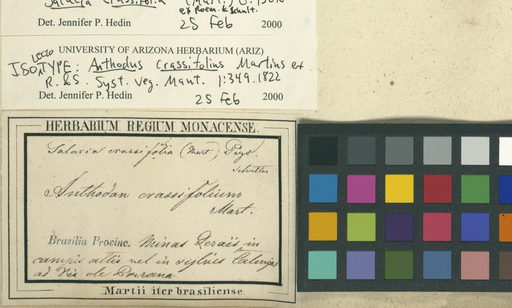 Salacia crassifolia (Mart.) G. Don
ex Roem. & Schult.
Det. Jennifer P. Hedin 25 Feb 2000
UNIVERSITY OF ARIZONA HERBARIUM (ARIZ)
ISOTYPE: Anthodus crassifolius Martius ex
R. & S. Syst. Veg. Mant. 1:349. 1822
Det. Jennifer P. Hedin 25 Feb 2000
HERBARIUM REGIUM MONACENSE.
Salacia crassifolia (Mart.) Peyr.
Anthodon crassifolium
Mart.
Brasilia Provinc. Minas Geraës, in
campis altis vel in
ad Via de
Martii iter brasiliense.